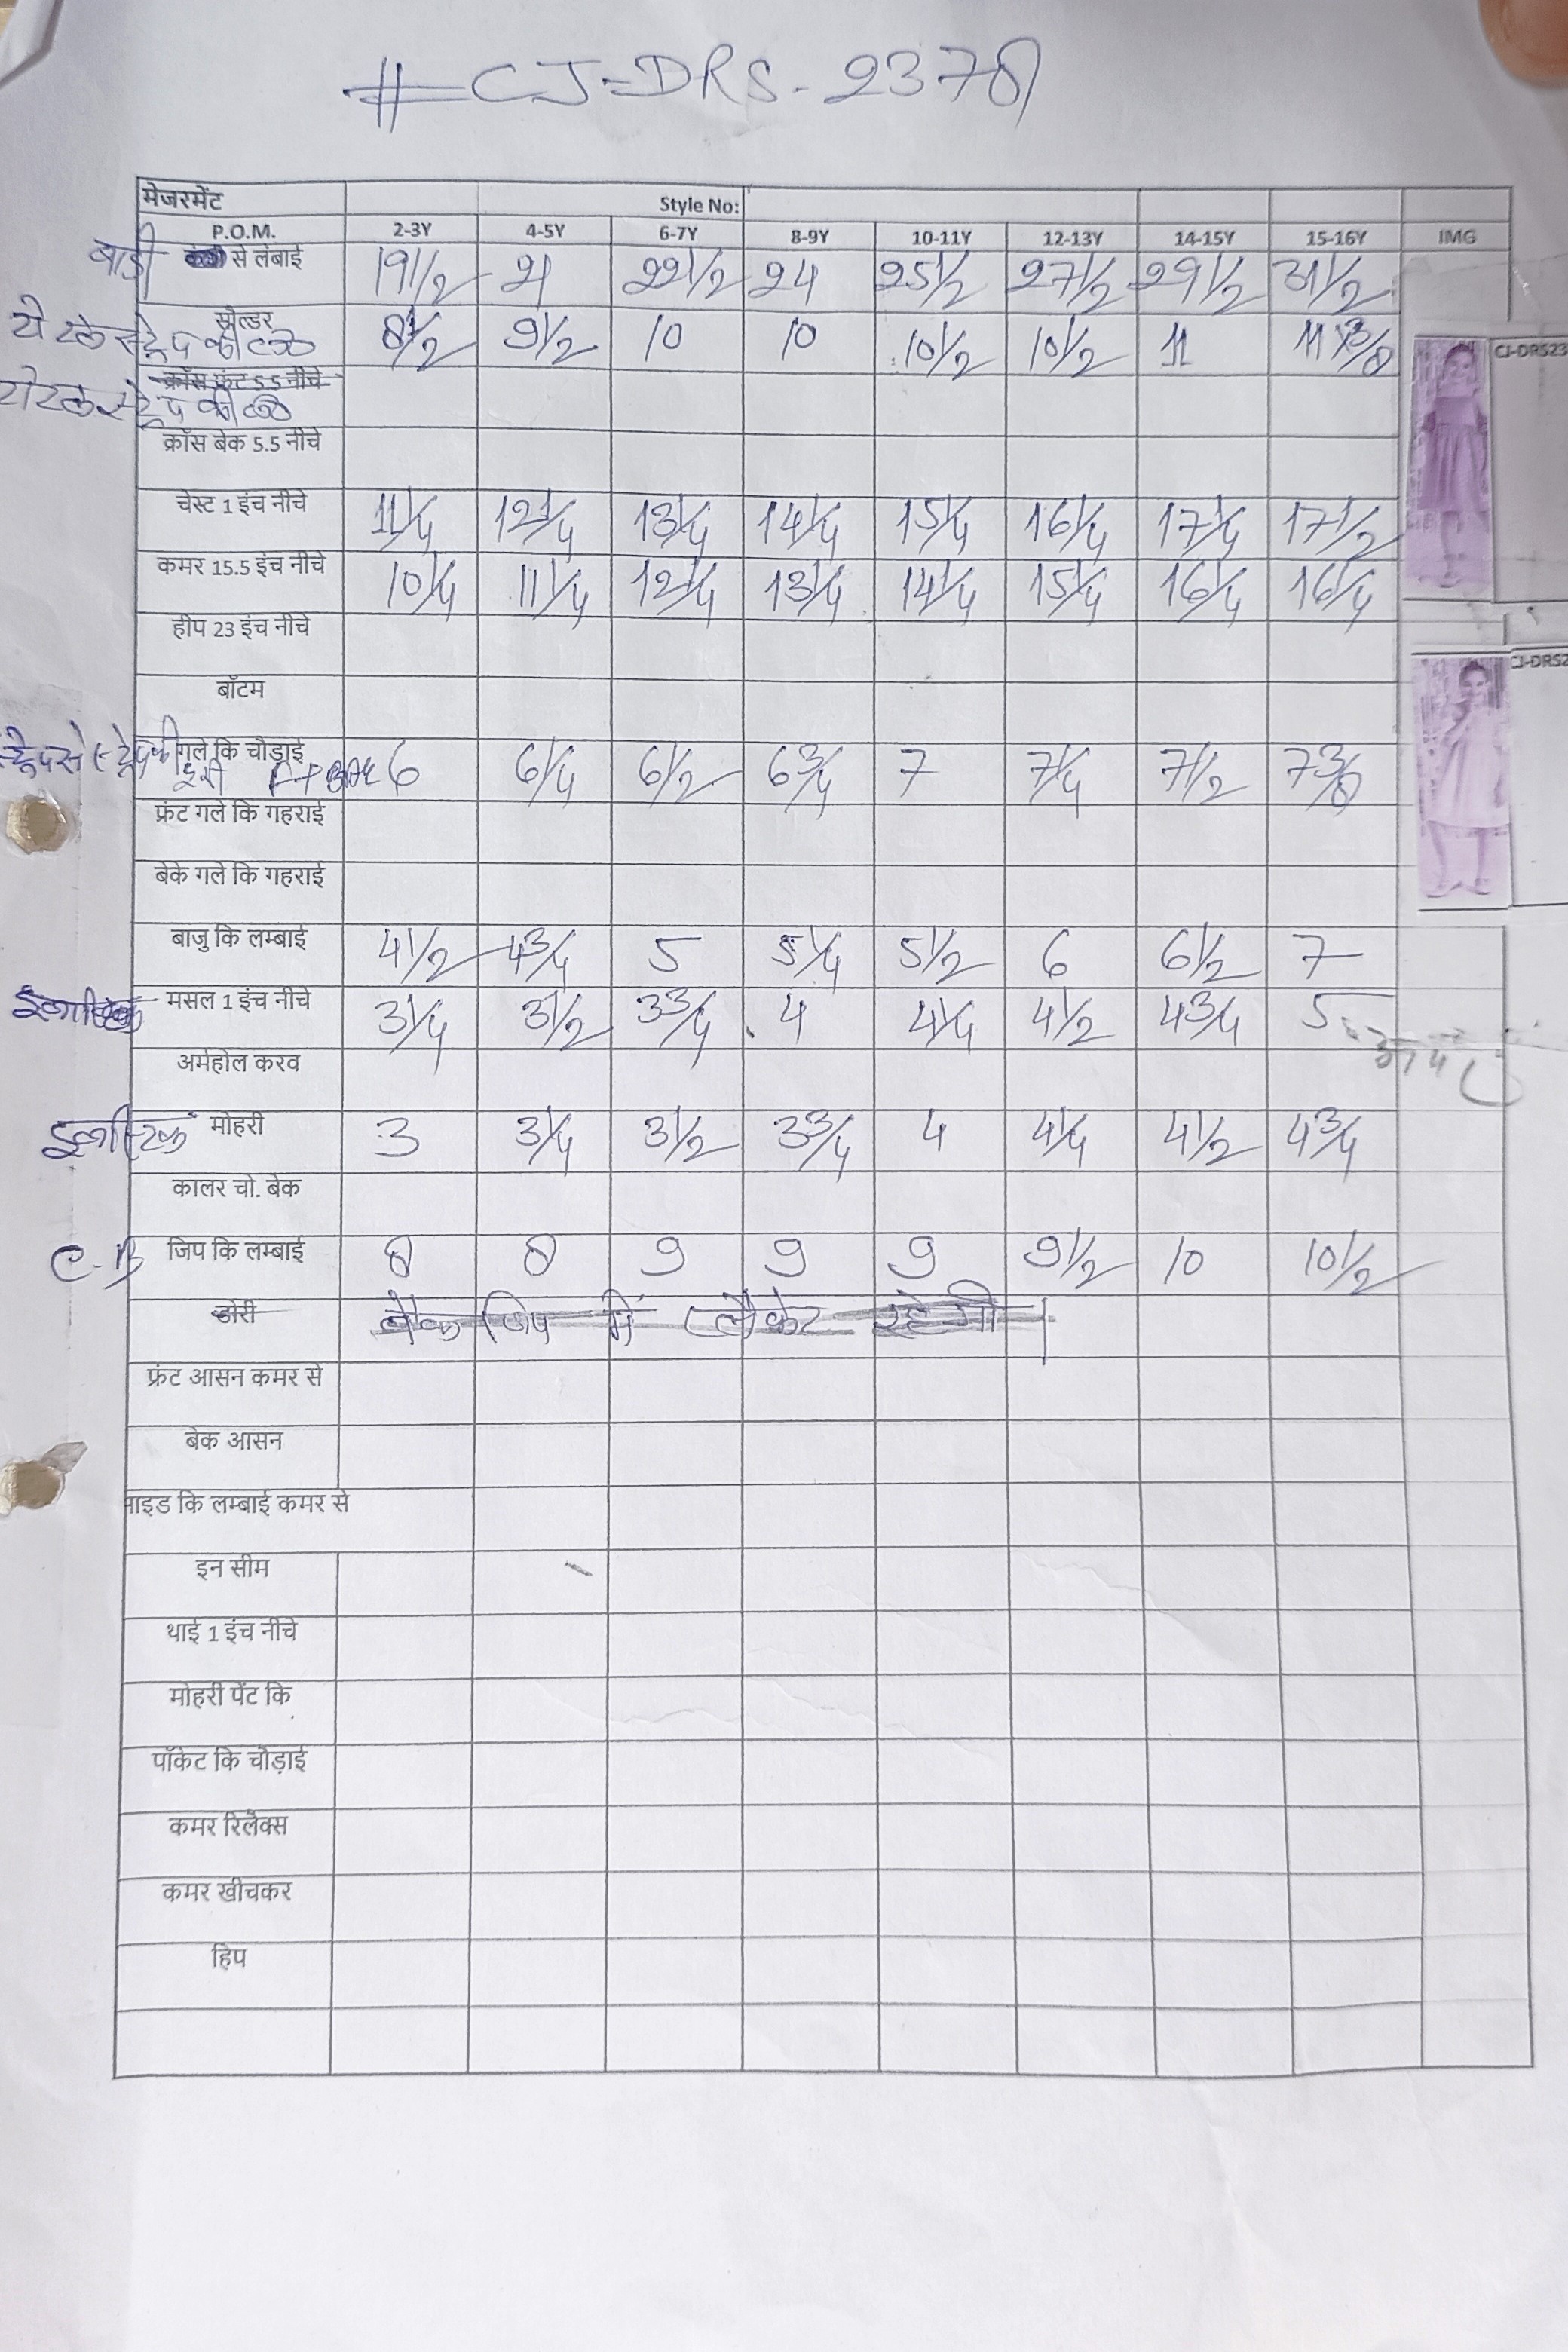 #CJ-DRS-2378
मेजरमेंट Style No:
P.O.M. 2-3Y 4-5Y 6-7Y 8-9Y 10-11Y 12-13Y 14-15Y 15-16Y IMG
बाडी से लंबाई 19 1/2 21 22 1/2 24 25 1/2 27 1/2 29 1/2 31 1/2
सोल्डर 8 1/2 9 1/2 10 10 10 1/2 10 1/2 11 11
क्रॉस फ्रंट 5.5 नीचे
क्रॉस बेक 5.5 नीचे
चेस्ट 1 इंच नीचे 11 1/4 12 1/4 13 1/4 14 1/4 15 1/4 16 1/4 17 1/4 17 1/2
कमर 15.5 इंच नीचे 10 1/4 11 1/4 12 1/4 13 1/4 14 1/4 15 1/4 16 1/4 16 1/4
हीप 23 इंच नीचे
बॉटम
गले कि चौड़ाई 6 6 1/4 6 1/2 6 3/4 7 7 1/4 7 1/2 7 3/8
फ्रंट गले कि गहराई
बेके गले कि गहराई
बाजु कि लम्बाई 4 1/2 4 3/4 5 5 1/4 5 1/2 6 6 1/2 7
मसल 1 इंच नीचे 3 1/4 3 1/2 3 3/4 4 4 1/4 4 1/2 4 3/4 5
अर्महोल करव
इलास्टिक मोहरी 3 3 1/4 3 1/2 3 3/4 4 4 1/4 4 1/2 4 3/4
कालर चो. बेक
C.B जिप कि लम्बाई 8 8 9 9 9 9 1/2 10 10 1/2
डोरी बैक जिप में प्लैकेट रहेगी
फ्रंट आसन कमर से
बेक आसन
साइड कि लम्बाई कमर से
इन सीम
थाई 1 इंच नीचे
मोहरी पेंट कि
पॉकेट कि चौड़ाई
कमर रिलेक्स
कमर खीचकर
हिप
CJ-DRS23
CJ-DRS2